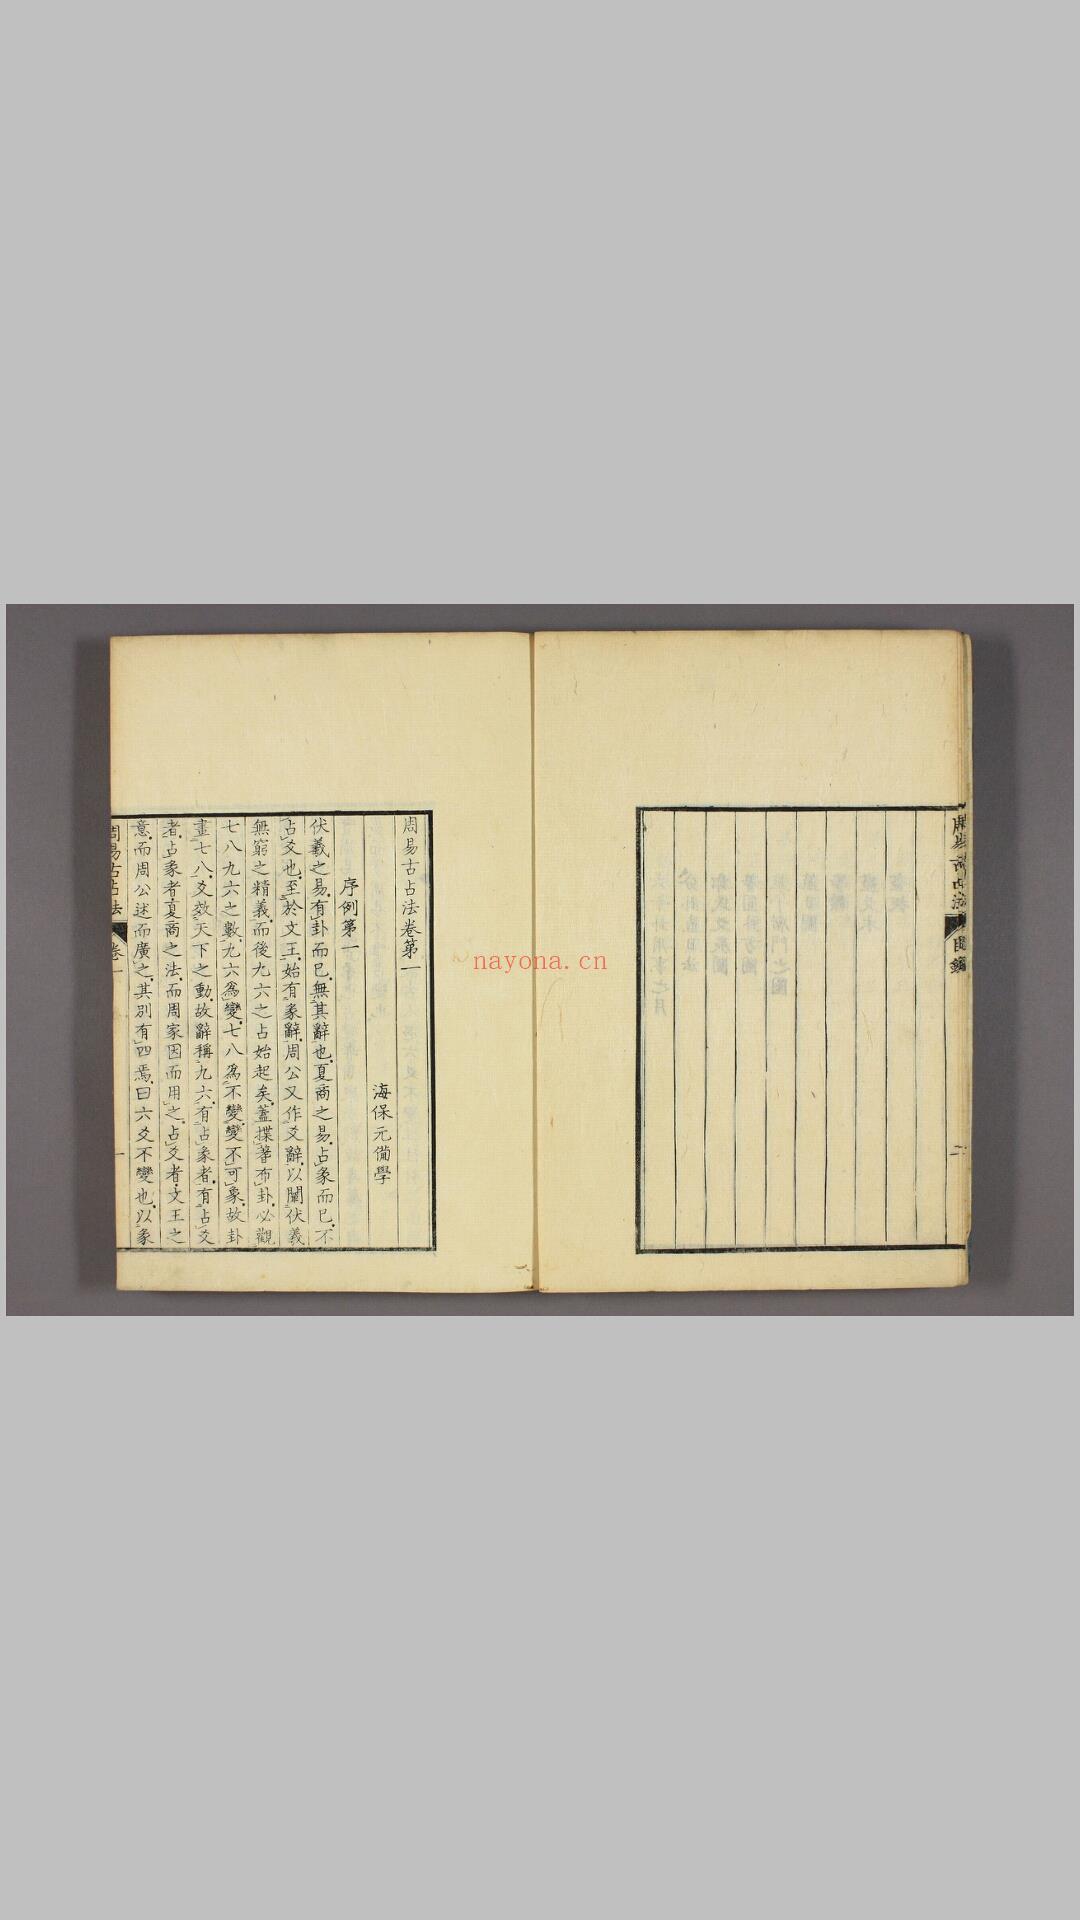 周易古占法 目録
二
周易古占法卷第一
海保元備學
序例第一
伏羲之易有卦而已無其辭也夏商之易占象而已不
占爻也至於文王始有象辭周公又作爻辭以闡伏羲
無窮之精義而後九六之占始起矣蓋揲蓍布卦必觀
七八九六之數九六為變七八為不變變不可象故卦
畫七八爻效天下之動故辭稱九六有占象者有占爻
者占象者夏商之法而周家因而用之占爻者文王之
意而周公述而廣之其別有四焉曰六爻不變也以象
周易古占法 卷一
一
nayona.cn